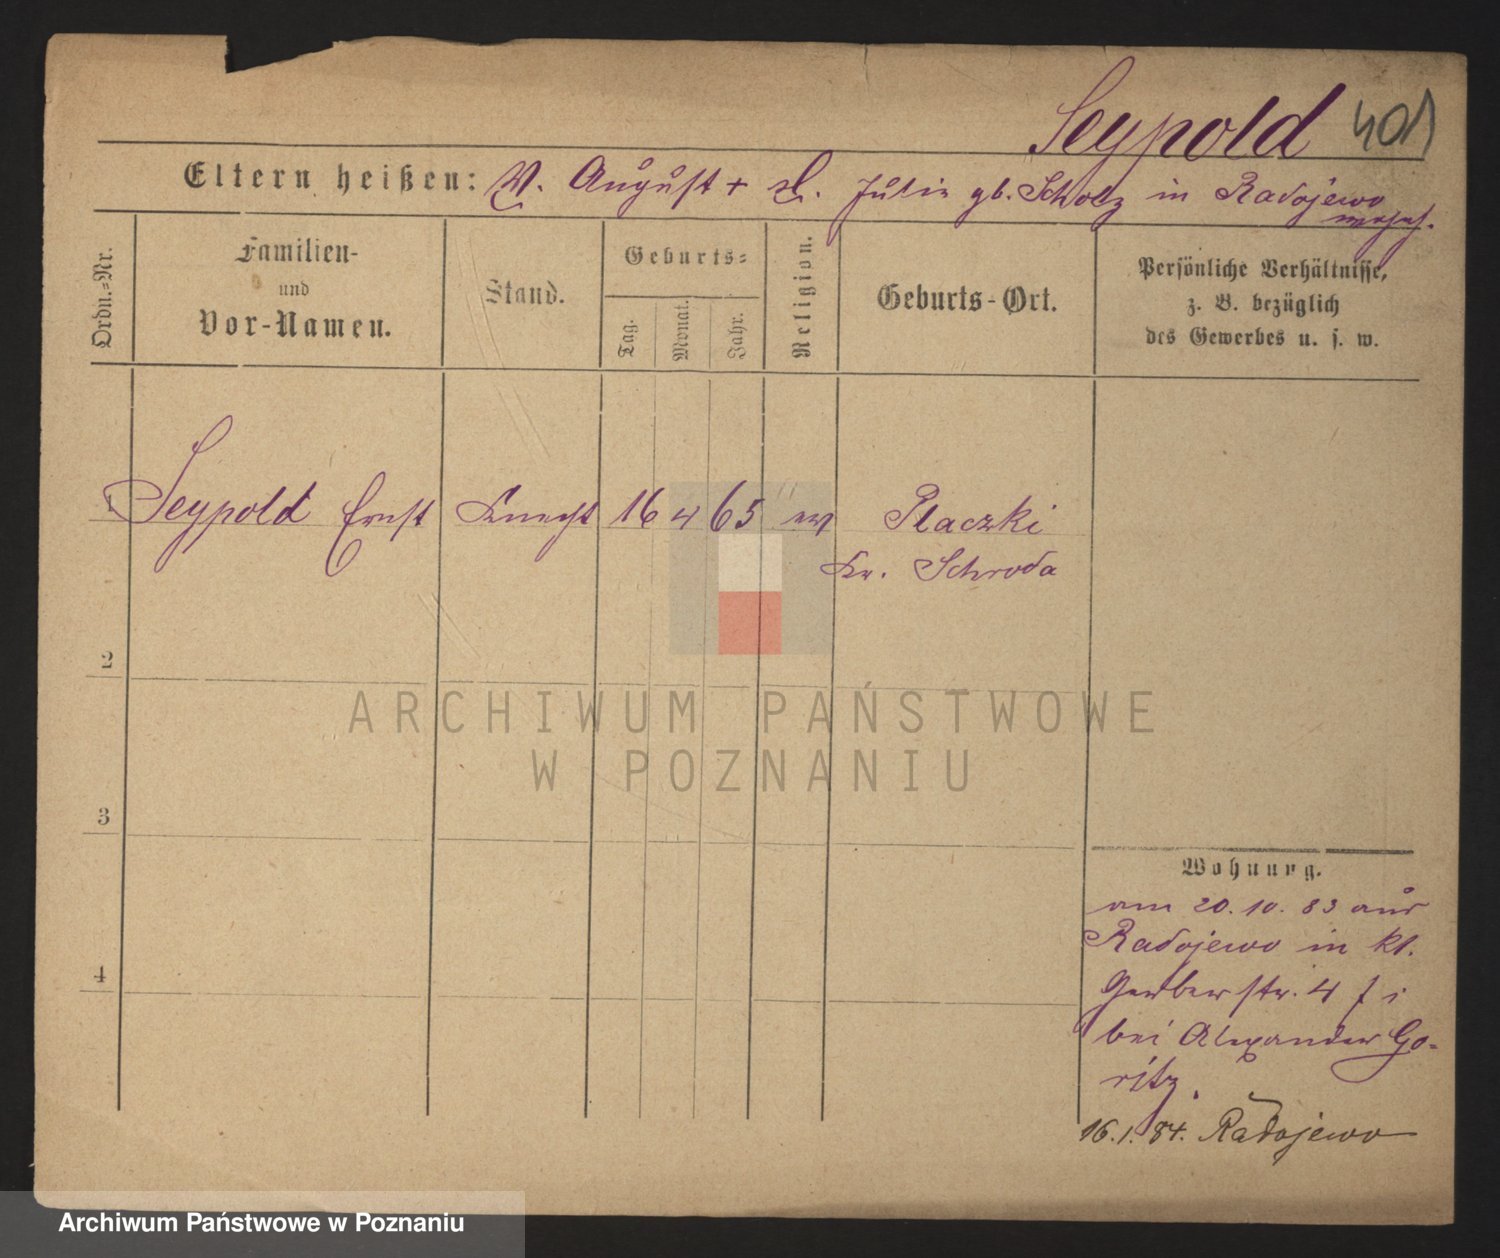 Seypold 401
Eltern heißen: V. August + M. Julie gb. Scholz in Radojewo
wohnh.
Ordn.-Nr.
Familien-
und
Vor-Namen.
Stand.
Geburts-
Tag.
Monat.
Jahr.
Religion.
Geburts-Ort.
Persönliche Verhältnisse,
z. B. bezüglich
des Gewerbes u. s. w.
1 Seypold Ernst Knecht 16 4 65 ev Placzki
Kr. Schroda
2
3
4
Wohnung.
am 20. 10. 83 aus
Radojewo in kl.
Gerberstr. 4 f i
bei Alexander Go-
ritz.
16. 1. 84. Radojewo
ARCHIWUM PAŃSTWOWE
W POZNANIU
Archiwum Państwowe w Poznaniu